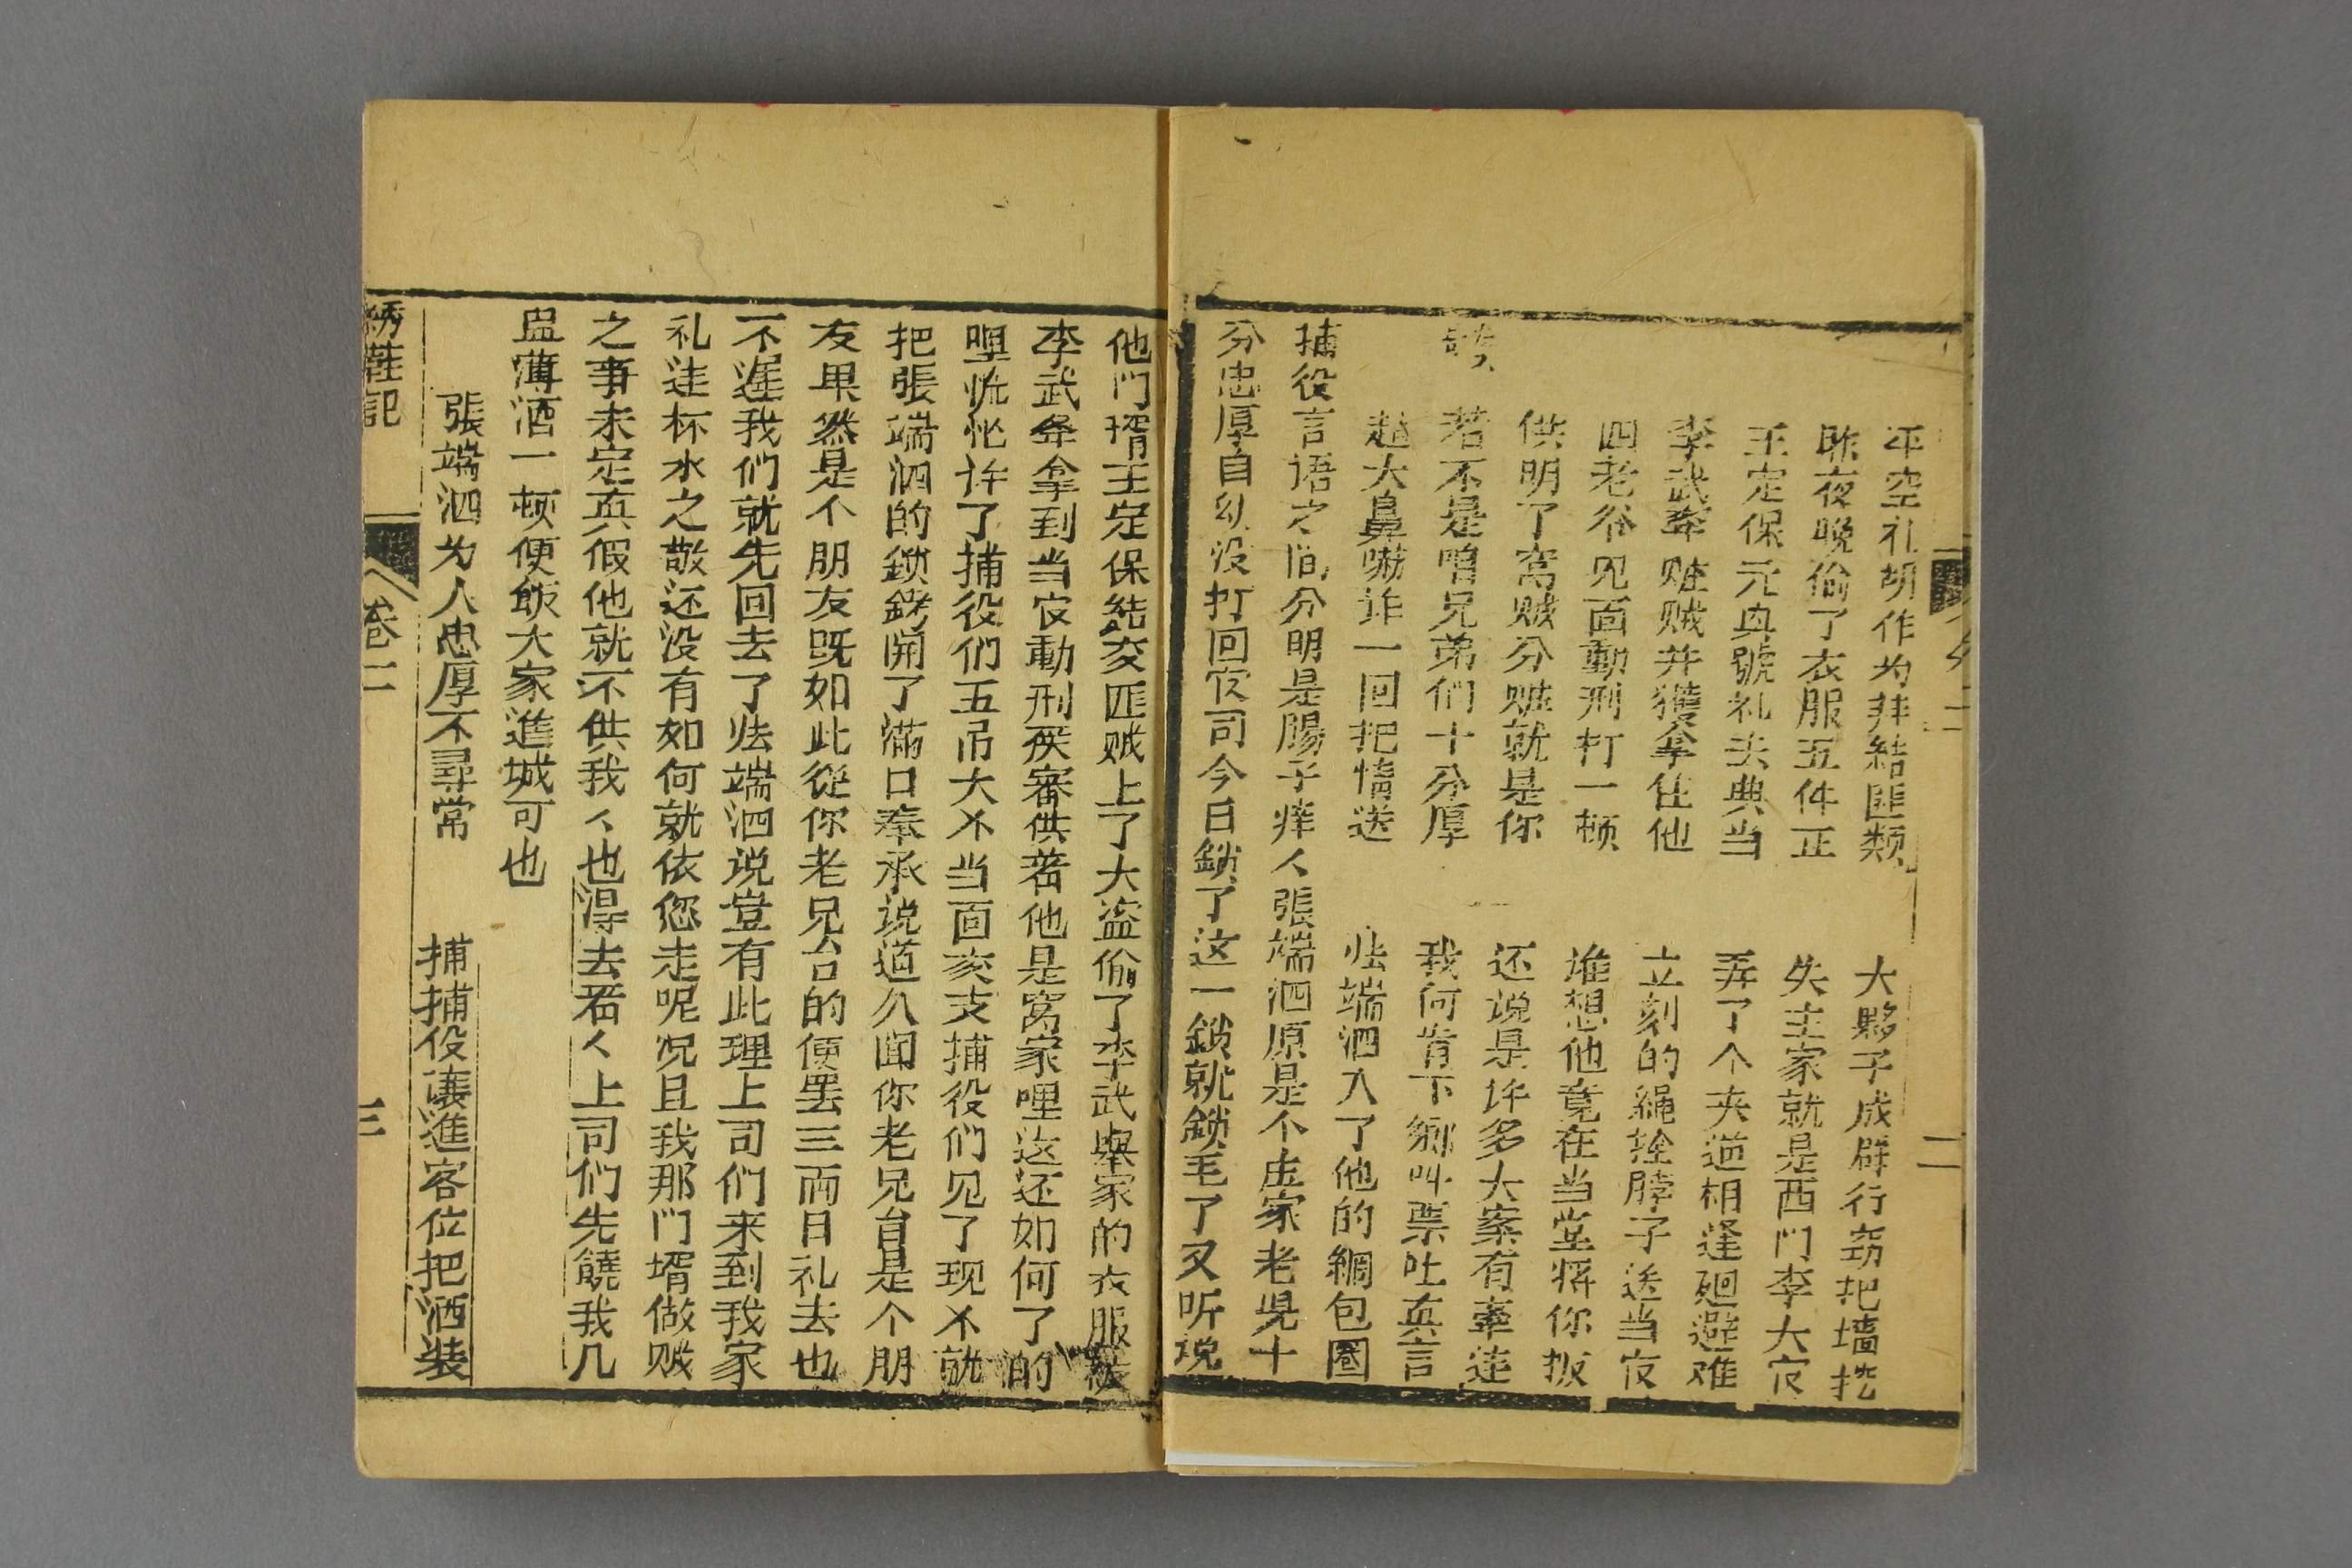 平空礼胡作为非結匪類　大夥子成群行窃把墙挖
昨夜晚偷了衣服五件正　失主家就是西门李大官
王定保元真號礼夫典当　弄了个夹道相逢廻避难
李武牽賍贼并獲拿住他　立刻的繩拴脖子送当官
四老爷见面動刑打一顿　谁想他竟在当堂将你扳
供明了窝贼分賍就是你　还说是许多大案有牽连
若不是咱兄弟们十分厚　我何肯下鄉叫票吐真言
赵大鼻嚇诈一回把情送　张端泗入了他的綱包圈
捕役言语之间分明是腸子痒人張端泗原是个庄家老児十
分忠厚自幼没打回官司今日鎖了这一鎖就鎖毛了又听说
二
他门壻王定保結交匪贼上了大盗偷了李武舉家的衣服被
李武舉拿到当官動刑嚴審供着他是窝家哩这还如何了的
哩慌忙许了捕役们五吊大个当面交支捕役们见了现个就
把張端泗的鎖銬開了滿口奉承说道久闻你老兄台是个朋
友果然是个朋友既如此從你老兄台的便罢三両日礼去也
不遲我们就先回去了张端泗说豈有此理上司们来到我家
礼连杯水之敬还没有如何就依您走呢况且我那门壻做贼
之事未定真假他就不供我人也得去着人上司们先饒我几
盅薄酒一顿便飯大家進城可也
張端泗为人忠厚不尋常　捕捕役讓進客位把酒装
綉鞋記
卷一
三